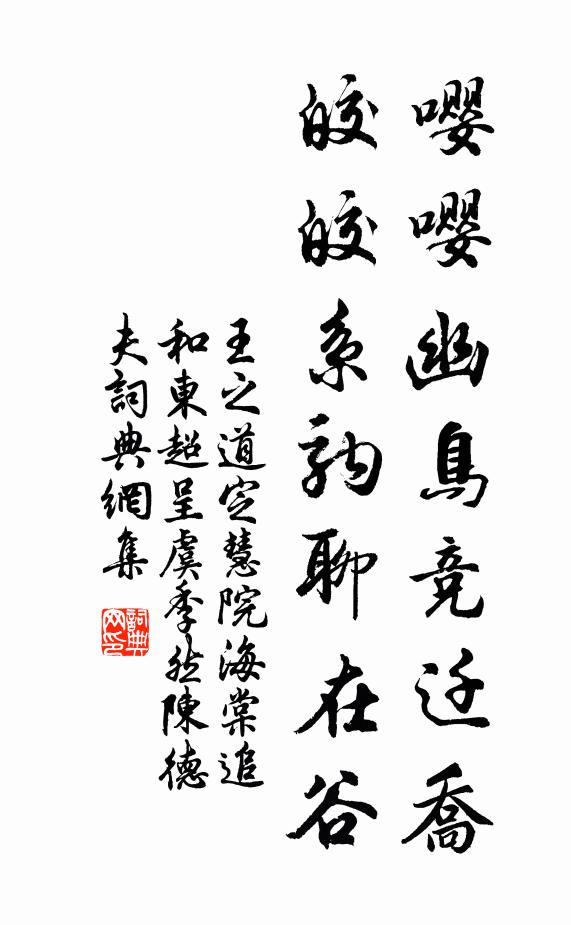 嚶嚶幽鳥竞迁喬
皎皎系駒聊在谷
王之道定慧院海棠追
和東超呈虞季然陳德
夫詞典網集
詞典网印